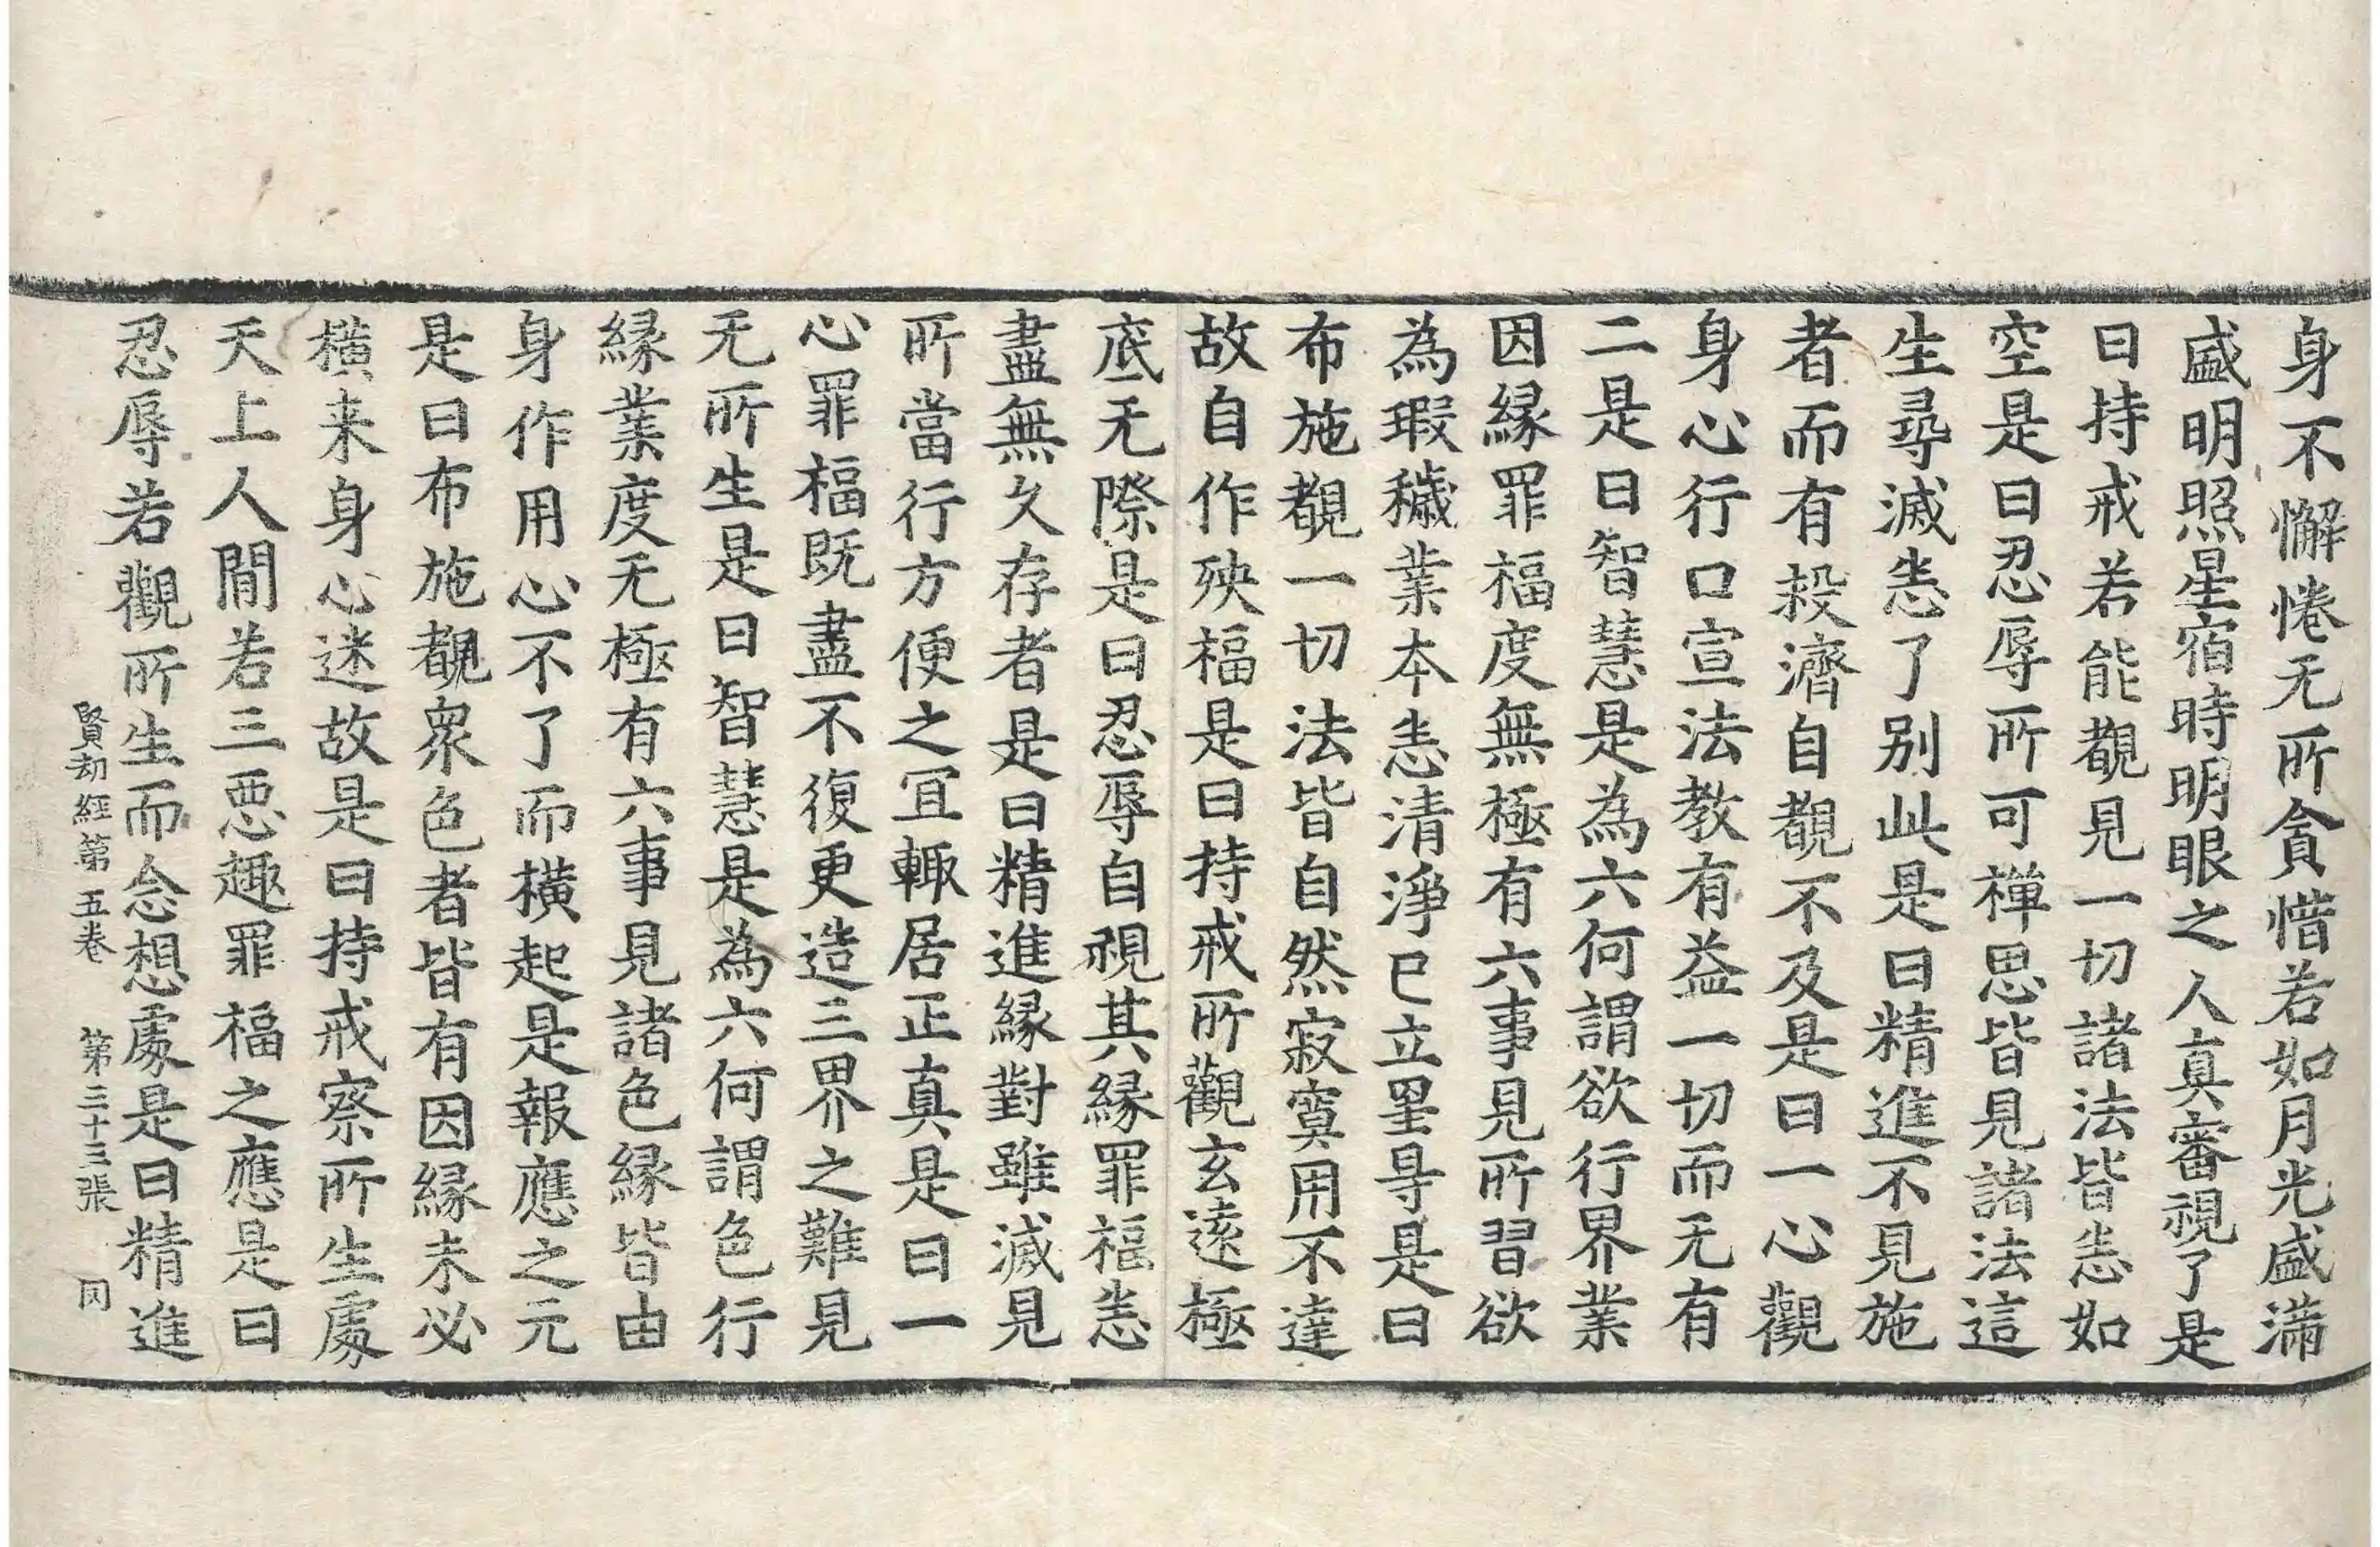 身不懈惓无所貪惜若如月光盛滿
盛明照星宿時明眼之人真審視了是
曰持戒若能覩見一切諸法皆悉如
空是曰忍辱所可禪思皆見諸法這
生尋滅悉了別此是曰精進不見施
者而有投濟自覩不及是曰一心觀
身心行口宣法教有益一切而无有
二是曰智慧是為六何謂欲行界業
因緣罪福度無極有六事見所習欲
為瑕穢業本悉清淨已立是曰
布施覩一切法皆自然寂寞用不達
故自作殃福是曰持戒所觀玄遠極
底无際是曰忍辱自視其緣罪福悉
盡無久存者是曰精進緣對雖滅見
所當行方便之宜輙居正真是曰一
心罪福既盡不復更造三界之難見
无所生是曰智慧是為六何謂色行
緣業度无極有六事見諸色緣皆由
身作用心不了而橫起是報應之元
是曰布施覩衆色者皆有因緣未必
橫来身心迷故是曰持戒察所生處
天上人間若三惡趣罪福之應是曰
忍辱若觀所生而念想處是曰精進
賢劫經第五卷 第三十三張